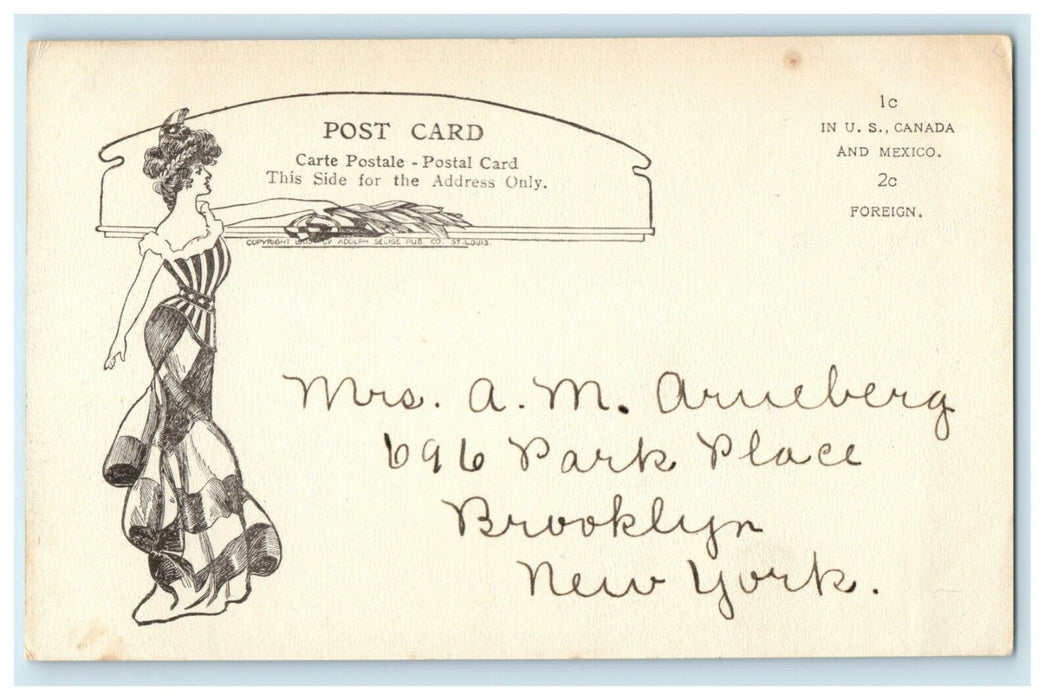 POST CARD
Carte Postale - Postal Card
This Side for the Address Only.
COPYRIGHT BY ADOLPH SELIGE PUB. CO. ST. LOUIS.
1c
IN U. S., CANADA
AND MEXICO.
2c
FOREIGN.
Mrs. A. M. Arneberg
696 Park Place
Brooklyn
New York.